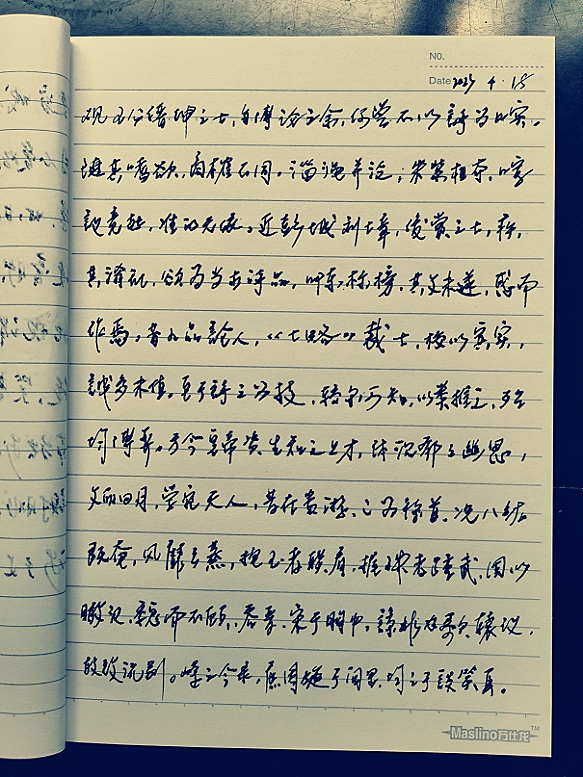 NO.
Date 2023 4.15
观王公缙绅之士,每博论之余,何尝不以诗为口实。
随其嗜欲,商榷不同。淄渑并泛,朱紫相夺,喧
议竞起,准的无依。近彭城刘士章,俊赏之士,疾
其淆乱,欲为当世诗品,口陈标榜,其文未遂,感而
作焉。昔九品论人,《七略》裁士,校以宾实,
诚多未值。至于诗之为技,较尔可知,以类推之,殆
均博弈。方今皇帝资生知之上才,体沉郁之幽思,
文丽日月,学究天人,昔在贵游,已为称首,况八纮
既奄,风靡云蒸,抱玉者联肩,握珠者踵武,固以
瞰汉魏而不顾,吞晋、宋于胸中。谅非农歌辕议,
敢致流别。嵘之今录,庶周旋于闾里,均之于谈笑耳。
Maslino万仕龙™